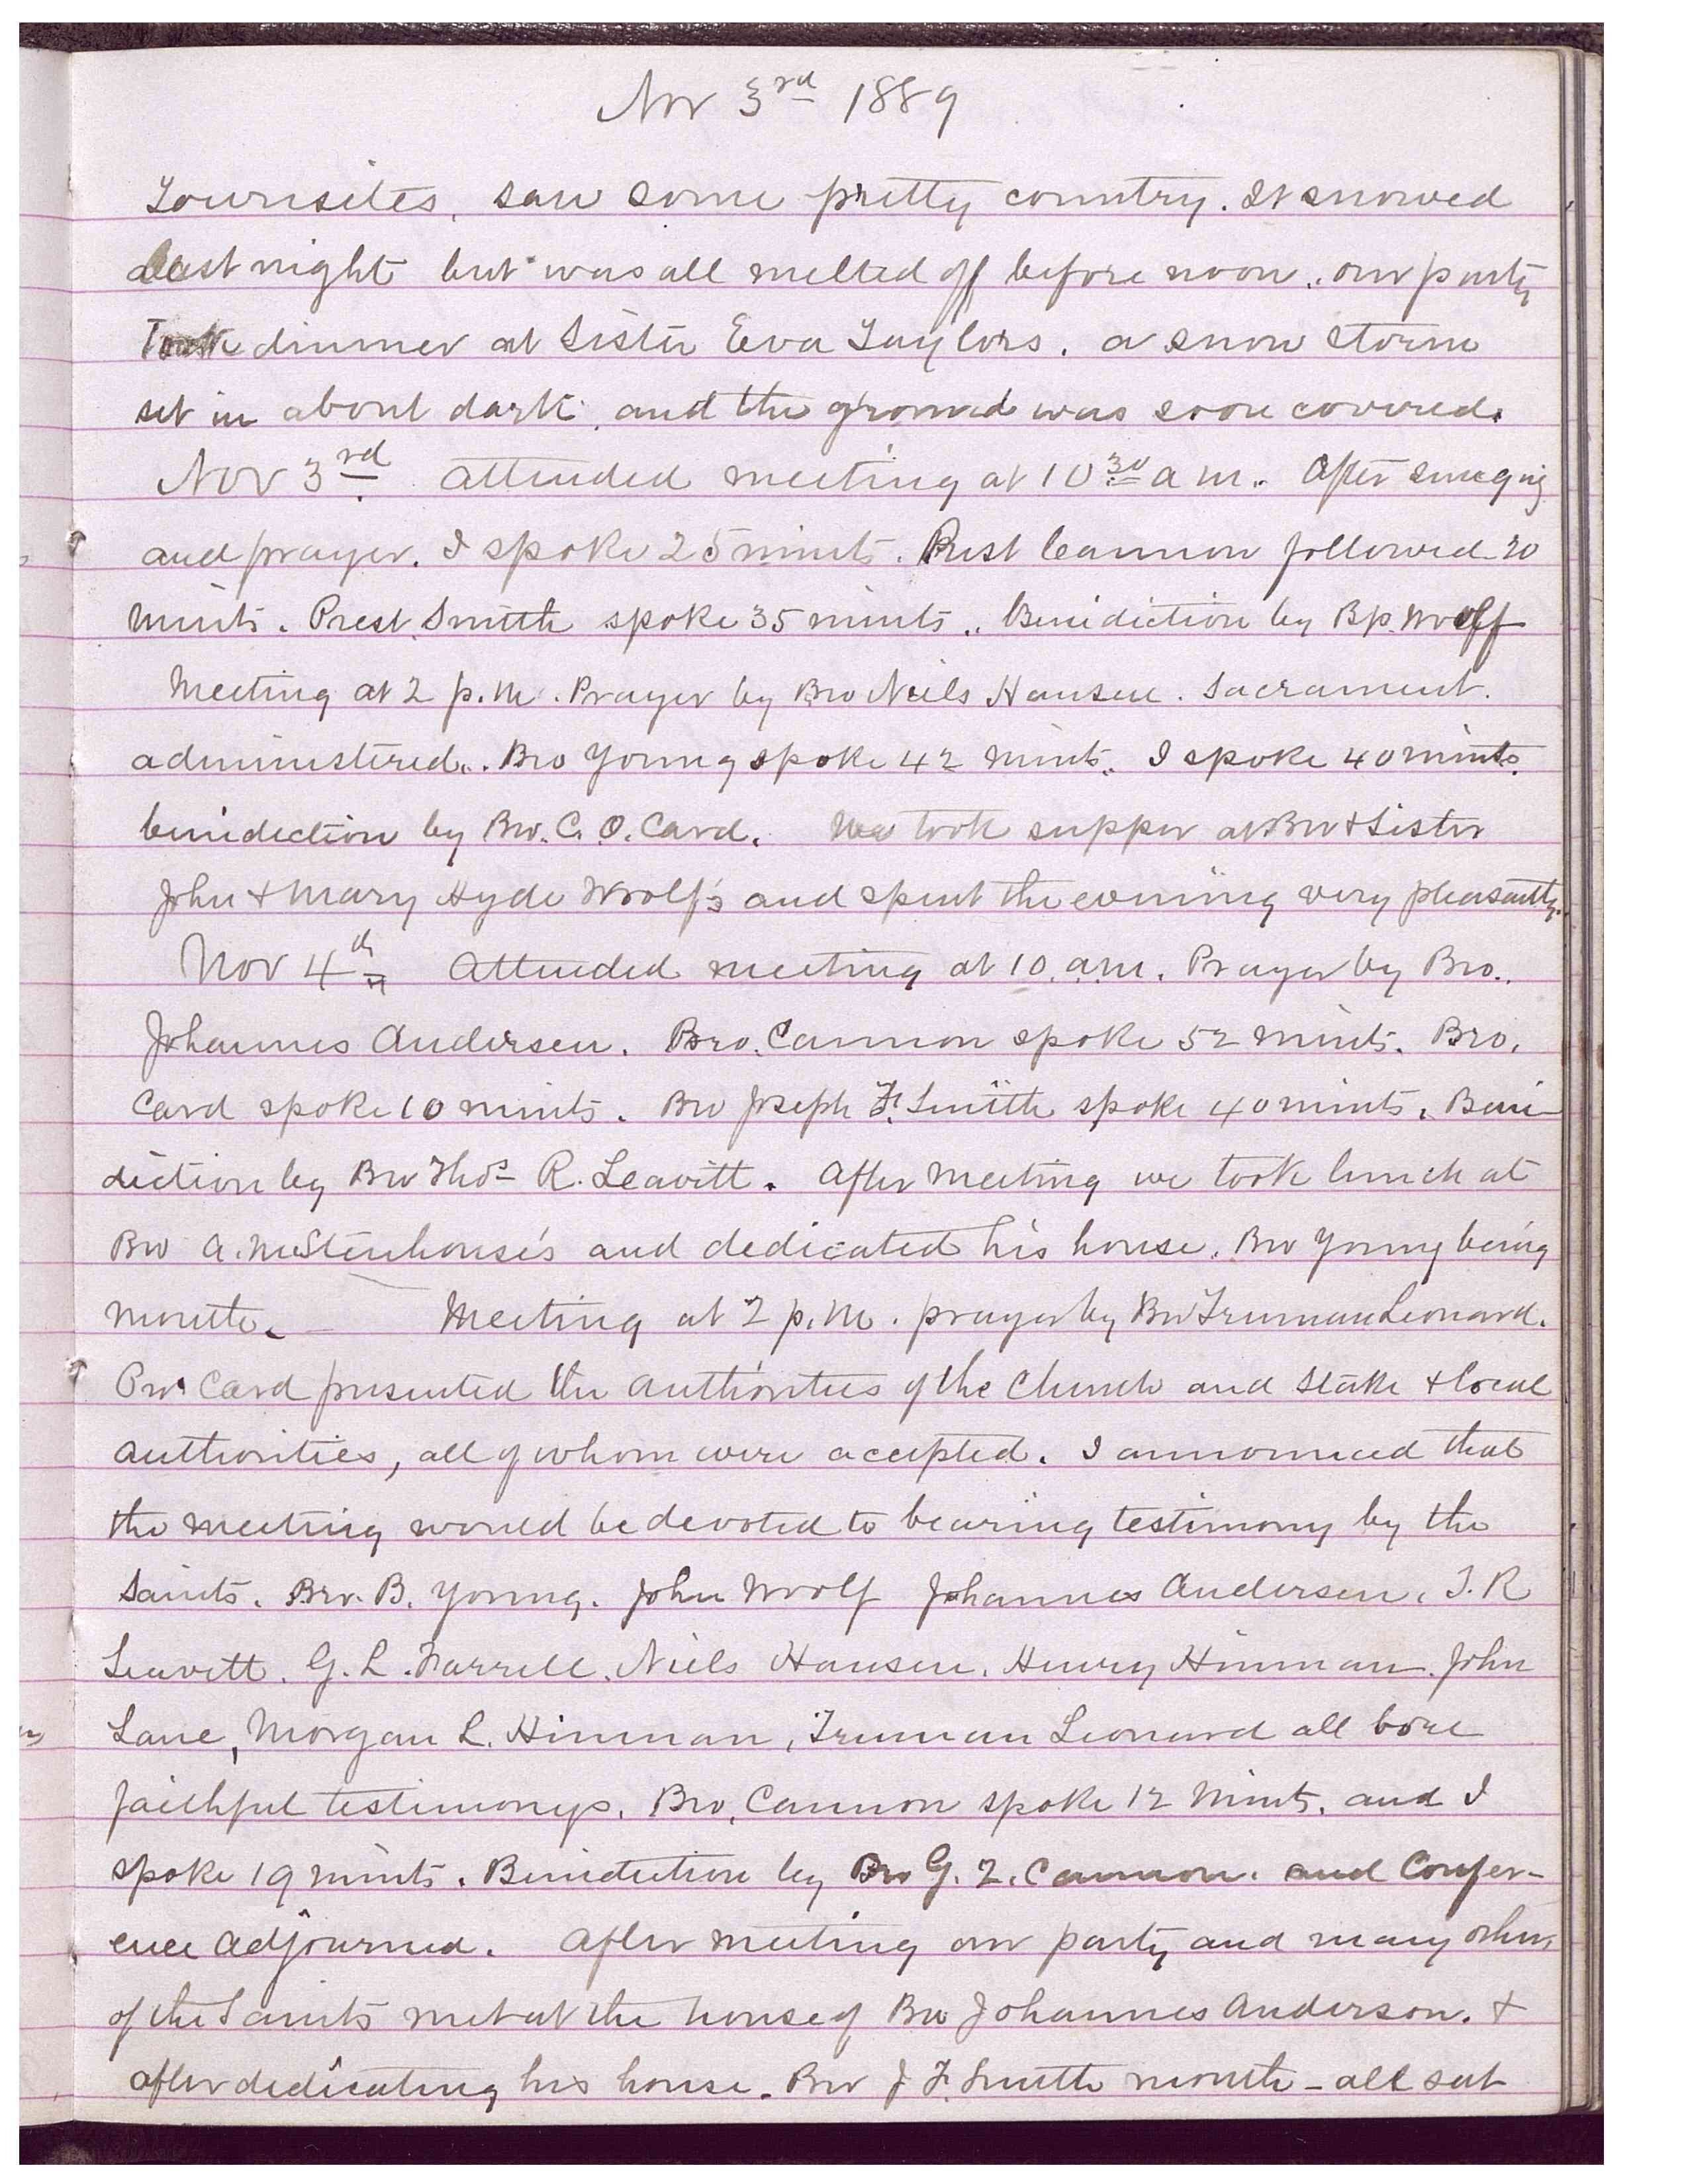 Nov 3rd 1889
Townsites, saw some pretty country. It snowed
last night but was all melted off before noon. our party
Took dinner at Sister Eva Taylors. a snow storm
set in about dark. and the ground was soon covered.
Nov 3rd attended meeting at 10 30 a m. After singing
and prayer. I spoke 25 minuts. Prest Cannon followed 20
minuts. Prest. Smith spoke 35 minuts. Benidiction by Bp. Woolf
Meeting at 2 p.m. Prayer by Bro Niels Hansen. Sacrament.
administered. Bro Young spoke 42 minuts. I spoke 40 minuts.
benidiction by Bro. C. O. Card. We took supper at Bro & Sister
John & Mary Hyde Woolf's and spent the evening very pleasantly.
Nov 4th Attended meeting at 10. a.m. Prayer by Bro.
Johannes Andersen. Bro. Cannon spoke 52 minuts. Bro.
Card spoke 10 minuts. Bro Joseph F. Smith spoke 40 minuts. Beni-
diction by Bro Thos R. Leavitt. After meeting we took lunch at
Bro A. McStenhouse's and dedicated his house. Bro Young being
mouth. Meeting at 2 p.m. prayer by Bro Truman Leonard.
Bro Card presented the authorities of the Church and Stake & local
authorities, all of whom were accepted. I announced that
the meeting would be devoted to bearing testimony by the
Saints. Bro. B. Young. John Woolf Johannes Andersen, T. R
Leavitt. G. L. Farrell. Niels Hansen. Henry Hinman. John
Lane, Morgan L. Hinman, Truman Leonard all bore
faithful testimonys. Bro. Cannon spoke 12 minuts. and I
spoke 19 minuts. Benidiction by Bro G. Q. Cannon. and Confer-
ence adjourned. After meeting our party and many others
of the Saints met at the house of Bro Johannes Anderson. &
after dedicating his house. Bro J F. Smith mouth - all sat